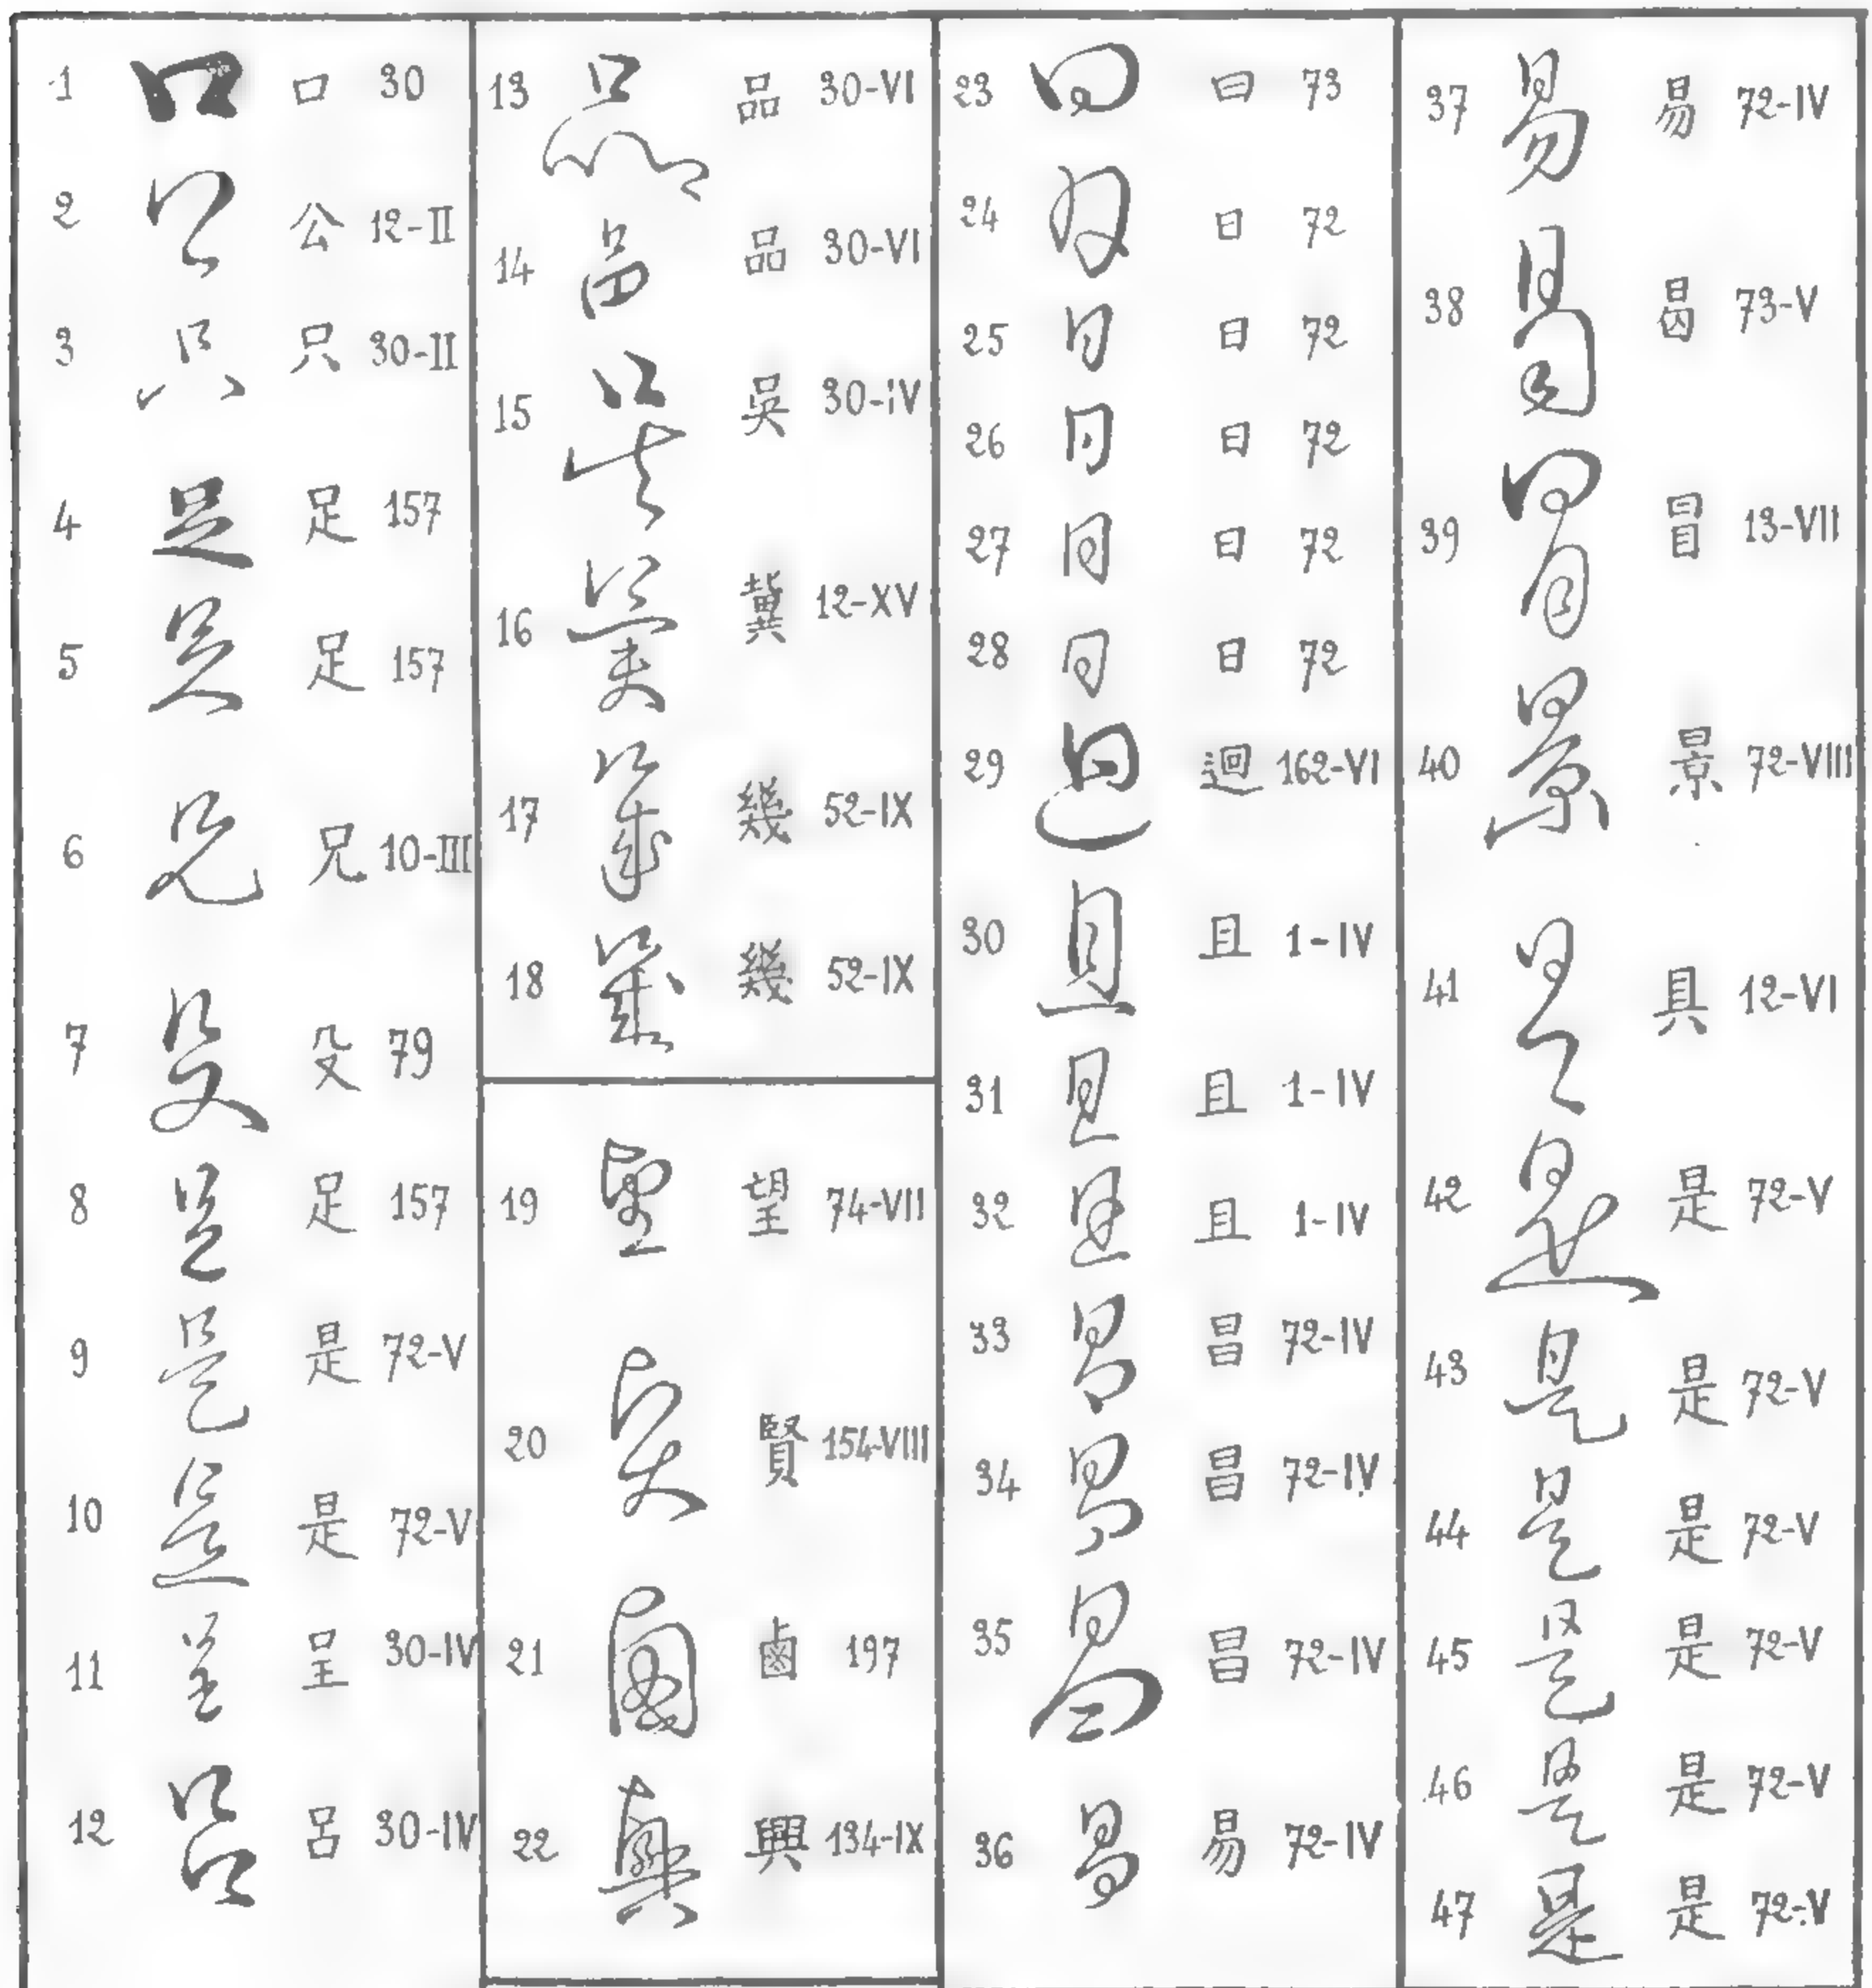 1 口 口 30
2 公 公 12-II
3 只 只 30-II
4 足 足 157
5 足 足 157
6 兄 兄 10-III
7 殳 殳 79
8 足 足 157
9 是 是 72-V
10 是 是 72-V
11 呈 呈 30-IV
12 呂 呂 30-IV
13 品 品 30-VI
14 品 品 30-VI
15 吳 吳 30-IV
16 冀 冀 12-XV
17 幾 幾 52-IX
18 幾 幾 52-IX
19 望 望 74-VII
20 賢 賢 154-VIII
21 鹵 鹵 197
22 興 興 134-IX
23 曰 曰 73
24 日 日 72
25 日 日 72
26 日 日 72
27 日 日 72
28 日 日 72
29 迴 迴 162-VI
30 且 且 1-IV
31 且 且 1-IV
32 且 且 1-IV
33 昌 昌 72-IV
34 昌 昌 72-IV
35 昌 昌 72-IV
36 易 易 72-IV
37 易 易 72-IV
38 曷 曷 73-V
39 冒 冒 13-VII
40 景 景 72-VIII
41 具 具 12-VI
42 是 是 72-V
43 是 是 72-V
44 是 是 72-V
45 是 是 72-V
46 是 是 72-V
47 是 是 72-V